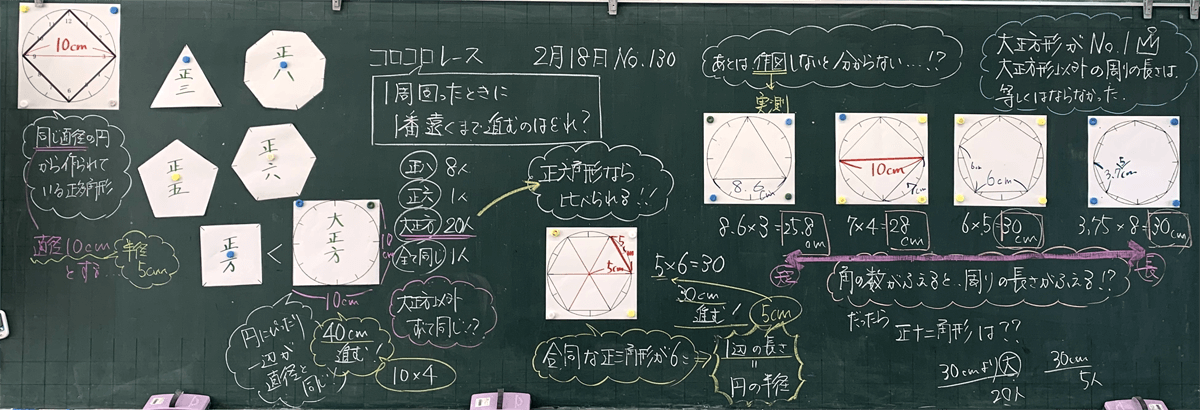 10cm
正三
正八
正五
正六
正方
<
大正方
10cm
10cm
同じ直径の円
から作られて
いる正多角形
直径10cm
とする…
半径
5cm
円にぴったり
一辺が
直径と同じ
40cm
進む!
10×4
コロコロレース 2月18日 No.130
1周回ったときに
1番遠くまで進むのはどれ?
正八 8人
正六 1人
大正方 20人
全て同じ 1人
大正方以外
正六角形なら
比べられる!!
5cm
5cm
5×6=30
30cm
進む!
5cm
合同な正三角形が6こ
=
1辺の長さ
=
円の半径
あとは作図しないと分からない…!?
実測
大正方形がNo.1
大正方形以外の周りの長さは、
等しくはならなかった。
8.6cm
10cm
7cm
6cm
6cm
5
3.75cm
8.6×3=25.8cm
7×4=28cm
6×5=30cm
3.75×8=30cm
短
長
角の数がふえると…周りの長さがふえる!?
だったら
正十二角形は??
30cmより大
20人
30cm
5人